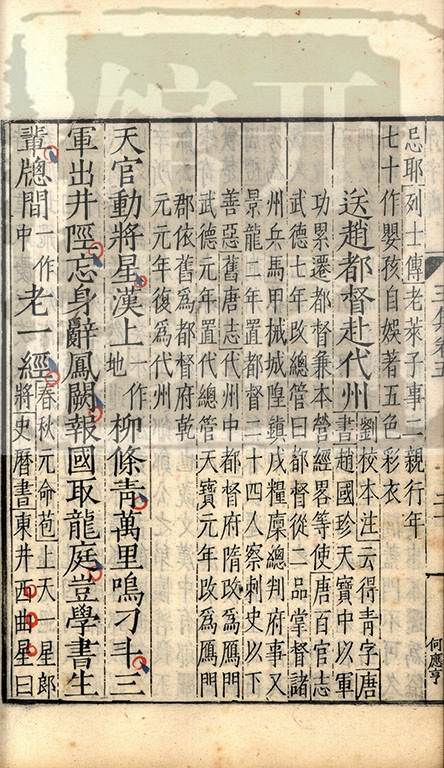 忌耶列士傳老萊子事二親行年
七十作嬰孩自娛著五色彩衣
送趙都督赴代州劉校本注云得青字唐
書趙國珍天寶中以軍
功累遷都督兼本營經畧等使唐百官志
武德七年改總管曰都督從二品掌督諸
州兵馬甲械城隍鎮戍糧廩總判府事又
景龍二年置都督二十四人察刺史以下
善惡舊唐志代州中都督府隋改為雁門
武德元年置代總管天寶元年改為鴈門
郡依舊為都督府乾
元元年復為代州
天官動將星漢上一作地柳條青萬里鳴刁斗三
軍出井陘忘身辭鳳闕報國取龍庭豈學書生
輩牕間一作中老一經春秋元命苞上天一星郎
將史曆書東井西曲星曰
何應亨